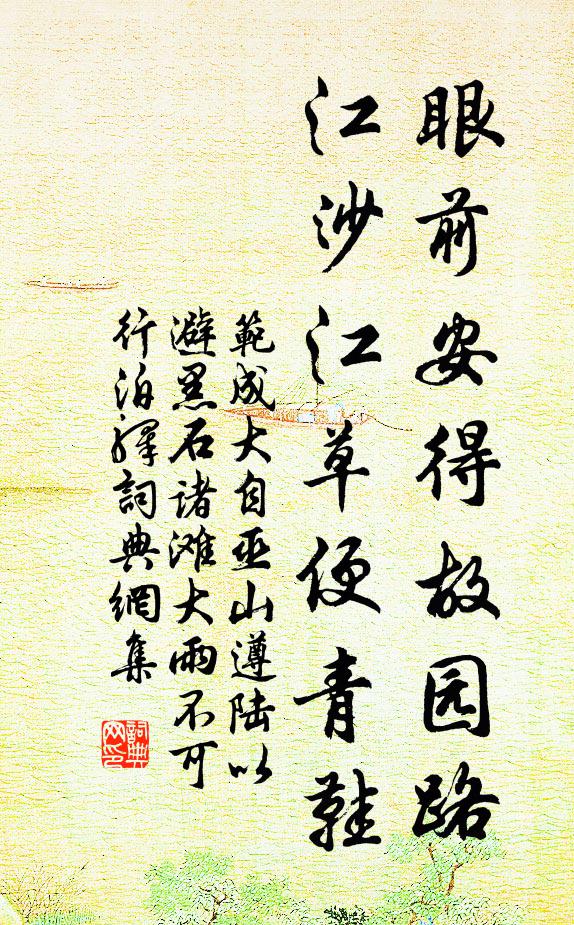 眼前安得故园路
江沙江草便青鞋
範成大自巫山遵陆以
避黑石诸滩大雨不可
行泊驿詞典網集
詞典
网印